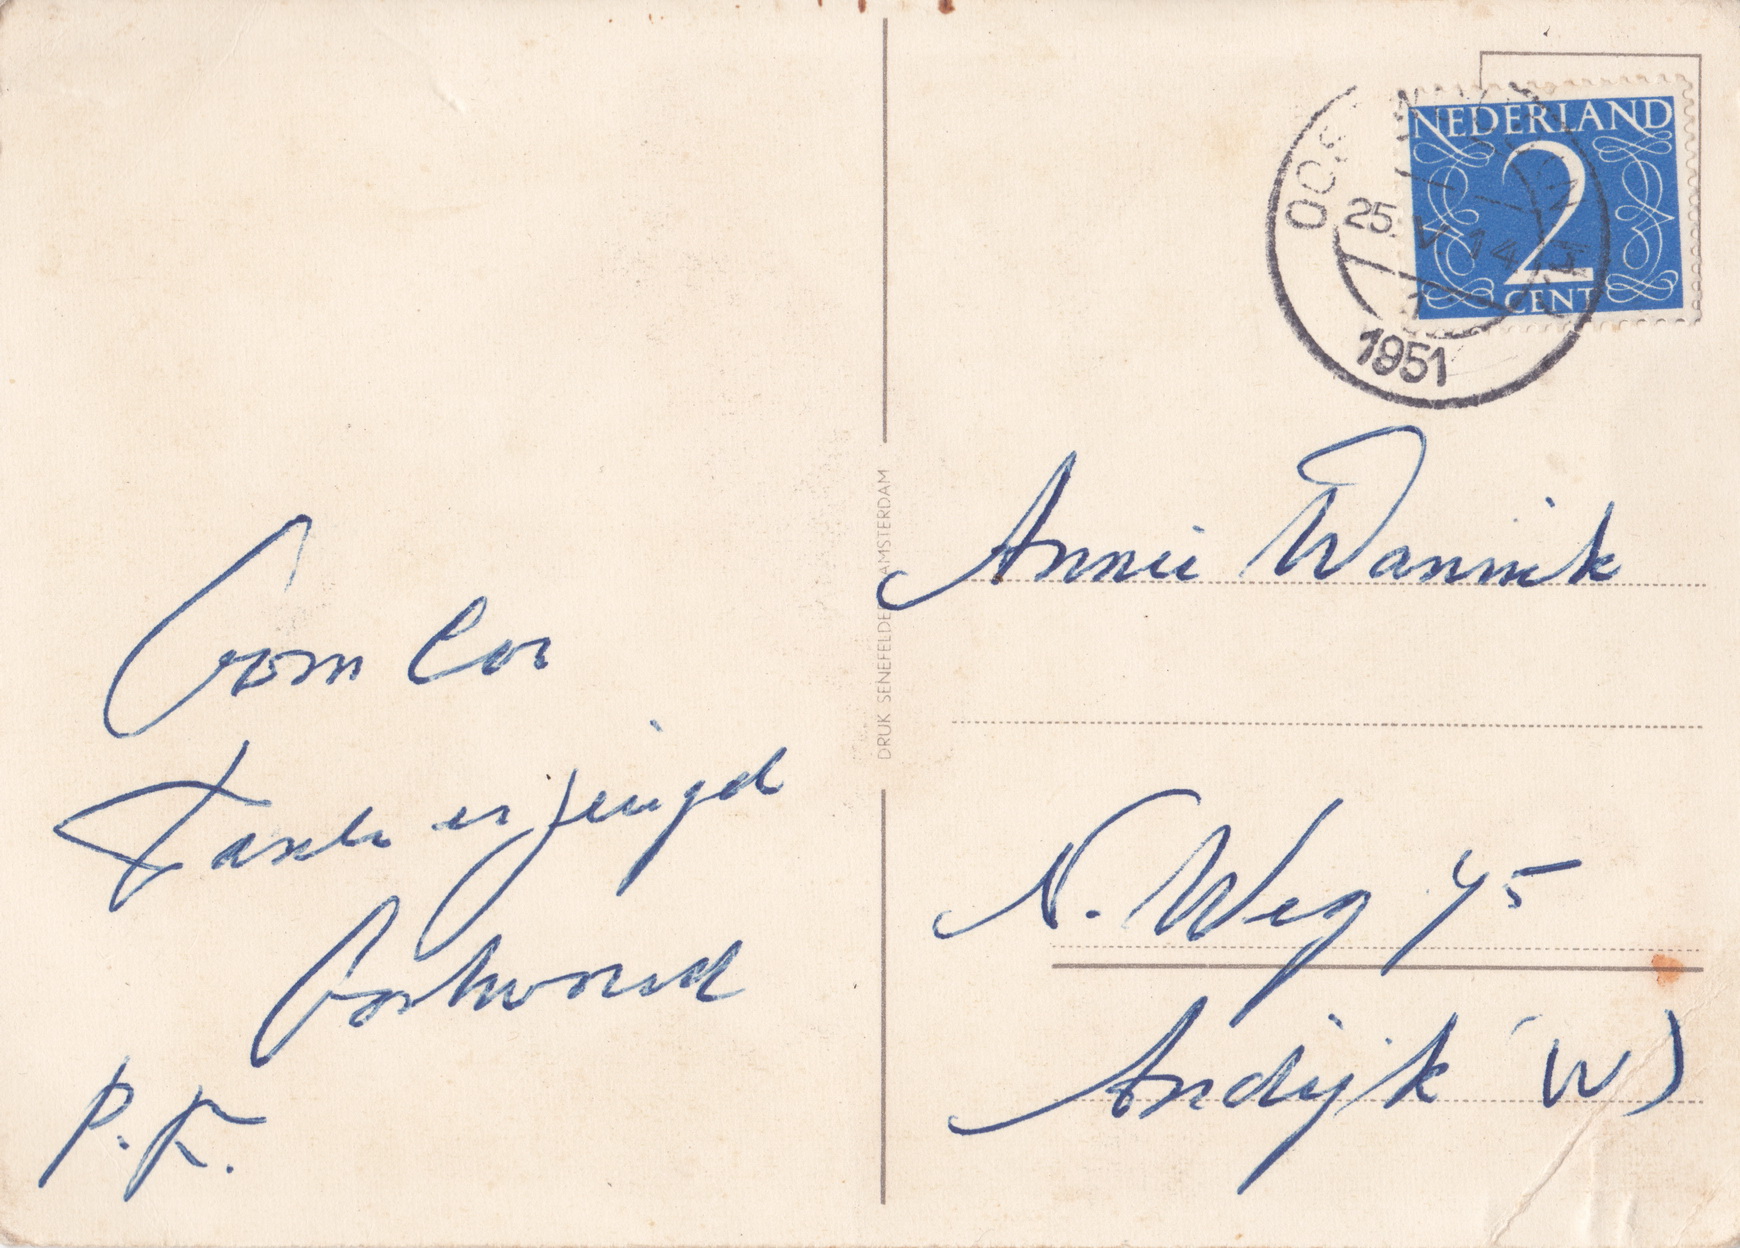 Oom Cor
Tante en jeugd
Oostwoud
P.K.
DRUK SENEFELDER AMSTERDAM
NEDERLAND
2
CENT
25 V 14
1951
Annie Wannik
N. Weg 45
Andijk (W)